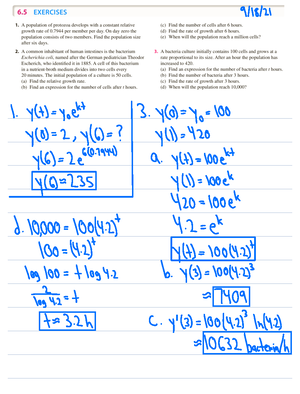 6.5 EXERCISES
9/18/21
1. A population of protozoa develops with a constant relative
growth rate of 0.7944 per member per day. On day zero the
population consists of two members. Find the population size
after six days.
2. A common inhabitant of human intestines is the bacterium
Escherichia coli, named after the German pediatrician Theodor
Escherich, who identified it in 1885. A cell of this bacterium
in a nutrient-broth medium divides into two cells every
20 minutes. The initial population of a culture is 50 cells.
(a) Find the relative growth rate.
(b) Find an expression for the number of cells after t hours.
(c) Find the number of cells after 6 hours.
(d) Find the rate of growth after 6 hours.
(e) When will the population reach a million cells?
3. A bacteria culture initially contains 100 cells and grows at a
rate proportional to its size. After an hour the population has
increased to 420.
(a) Find an expression for the number of bacteria after t hours.
(b) Find the number of bacteria after 3 hours.
(c) Find the rate of growth after 3 hours.
(d) When will the population reach 10,000?
1. y(t) = y₀e^kt
y(0) = 2, y(6) = ?
y(6) = 2e^6(0.7944)
y(6) ≈ 235
3. y(0) = y₀ = 100
y(1) = 420
a. y(t) = 100e^kt
y(1) = 100e^k
420 = 100e^k
4.2 = e^k
y(t) = 100(4.2)^t
b. y(3) = 100(4.2)^3
≈ 7409
c. y'(3) = 100(4.2)^3 ln(4.2)
≈ 10632 bacteria/h
d. 10,000 = 100(4.2)^t
100 = (4.2)^t
log 100 = t log 4.2
2/log 4.2 = t
t ≈ 3.2 h